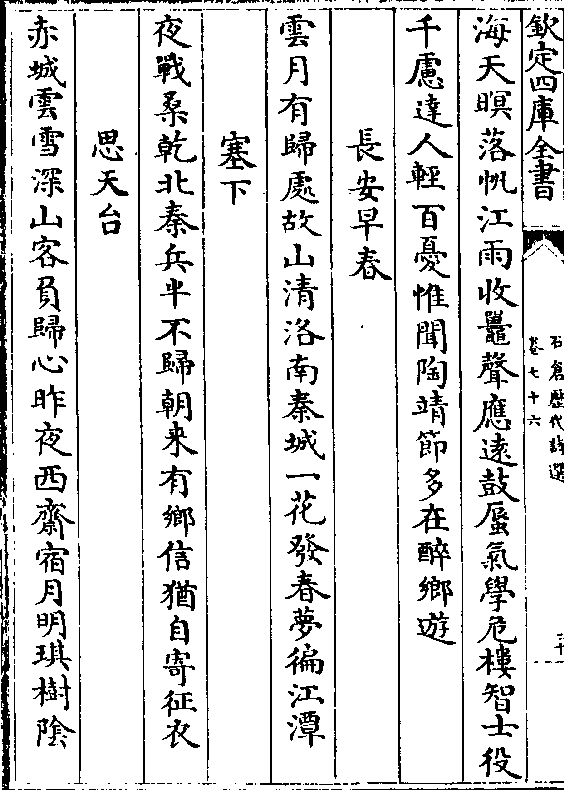 欽定四庫全書
石倉歷代詩選
卷七十六
海天暝落帆江雨收鼉聲應遠鼓蜃氣學危樓智士役
千慮達人輕百憂惟聞陶靖節多在醉鄉遊
長安早春
雲月有歸處故山清洛南秦城一花發春夢徧江潭
塞下
夜戰桑乾北秦兵半不歸朝来有鄉信猶自寄征衣
思天台
赤城雲雪深山客負歸心昨夜西齋宿月明琪樹陰